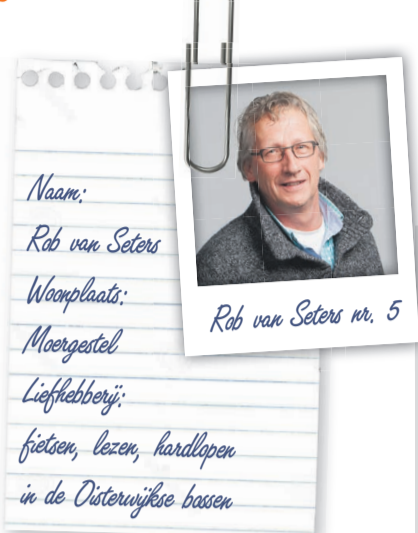 Naam:
Rob van Seters
Woonplaats:
Moergestel
Liefhebberij:
fietsen, lezen, hardlopen
in de Oisterwijkse bossen
Rob van Seters nr. 5